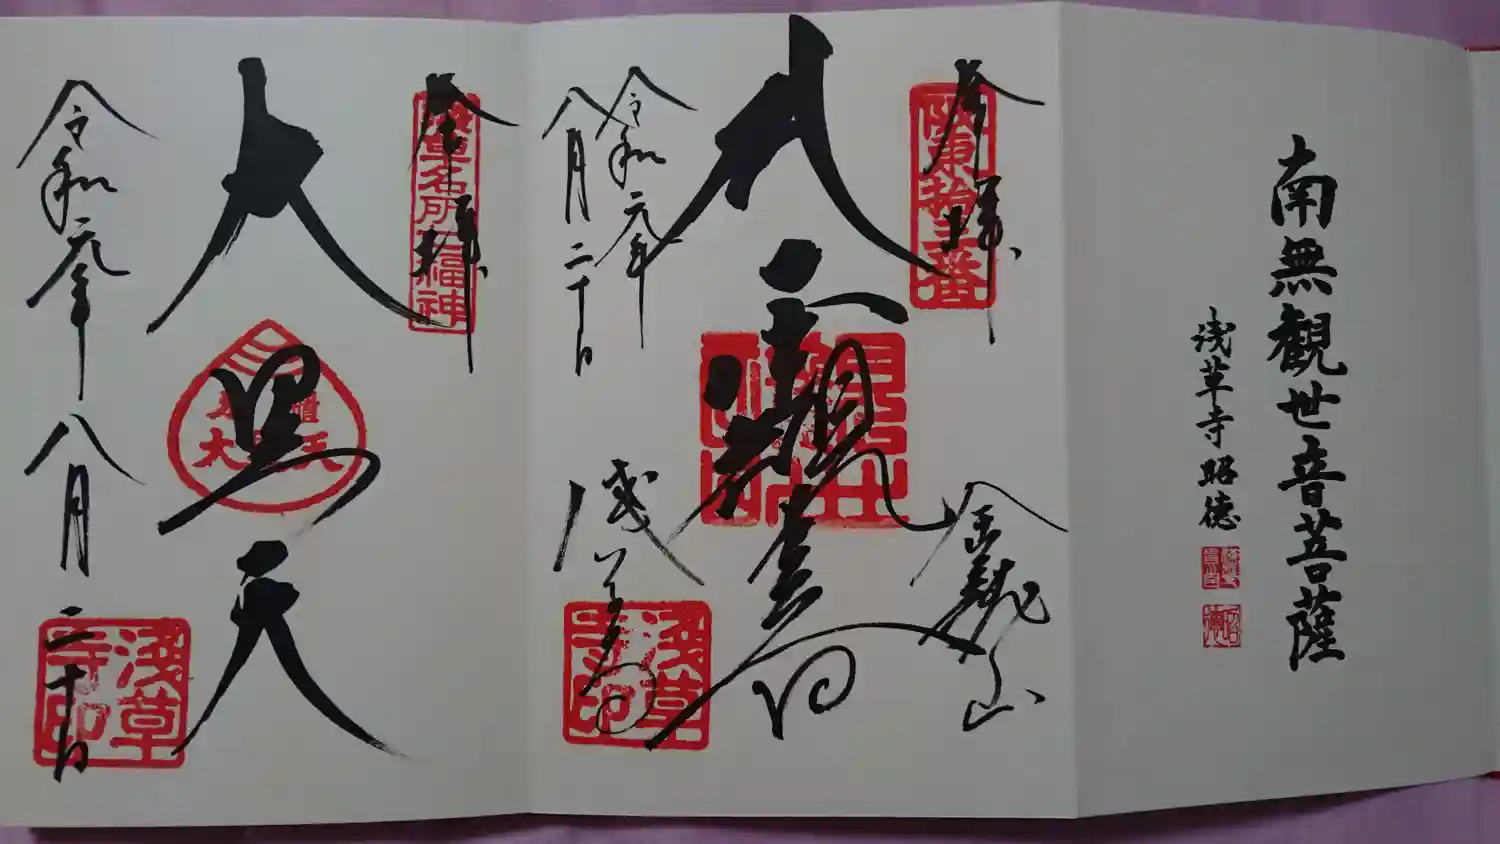 南無観世音菩薩
浅草寺昭徳
奉拝
阪東拾三番
大
金龍山
浅草寺
浅草寺印
令和元年
八月二十日
奉拝
浅草名所七福神
大黒天
令和元年八月二十日
浅草寺印